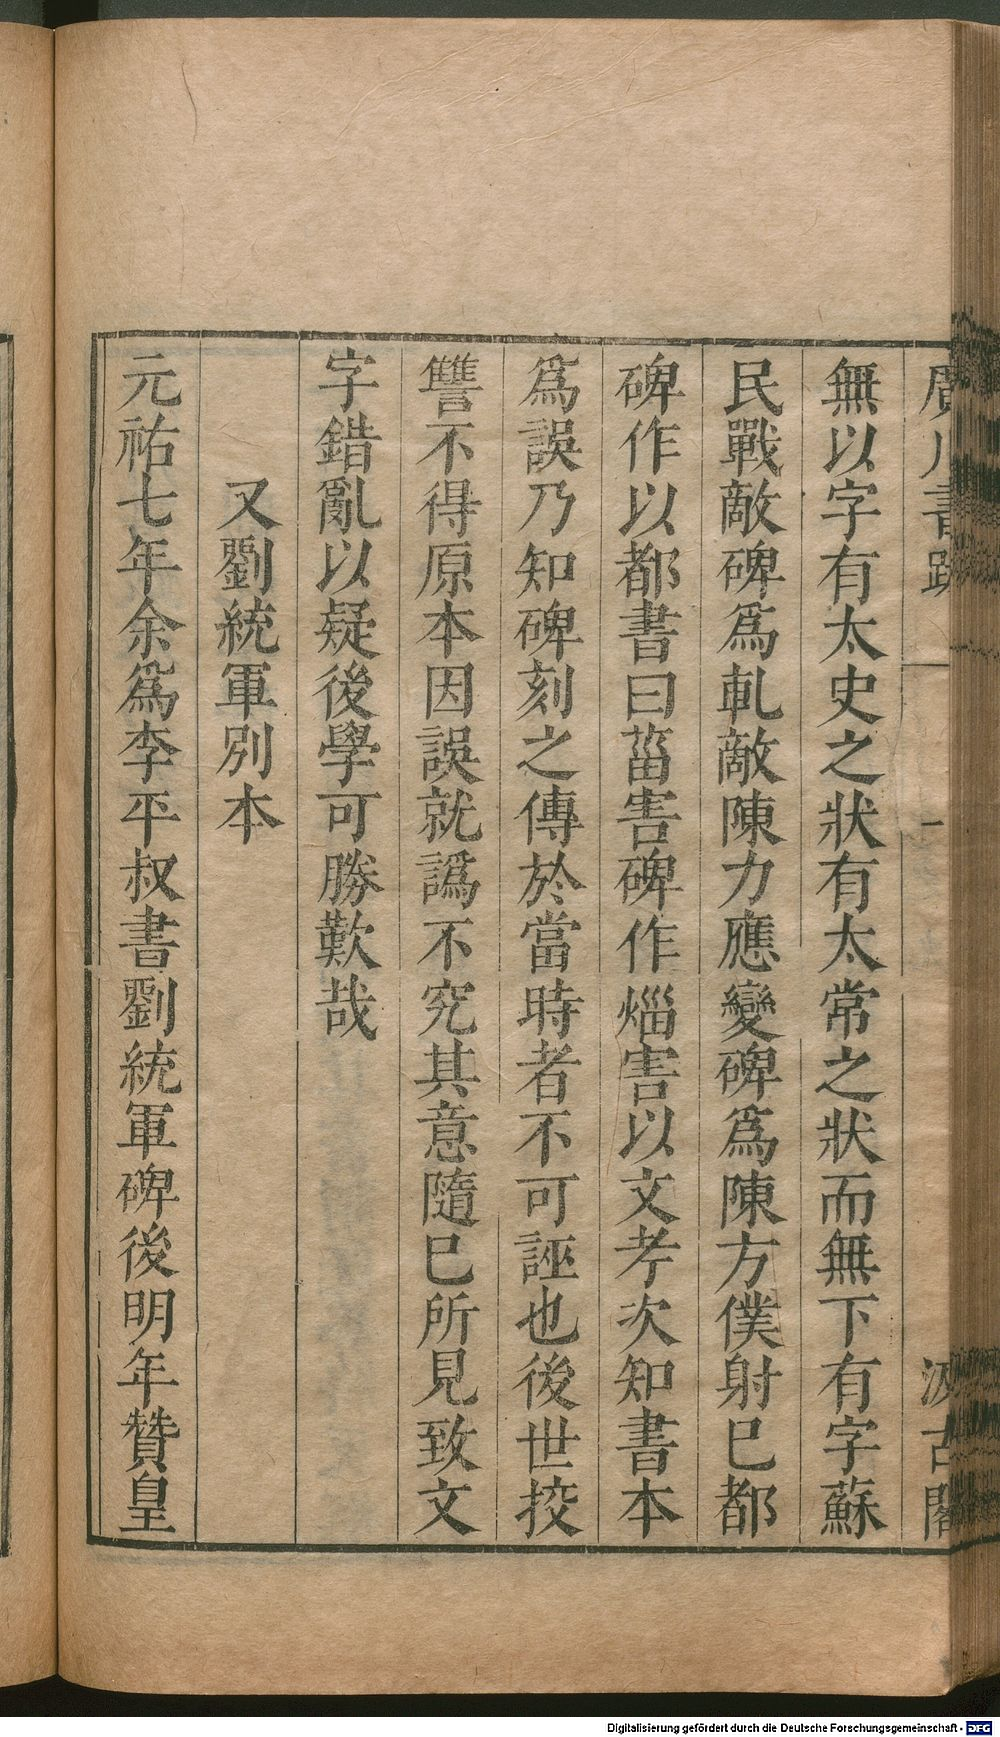 廣川書跋 一 汲古閣
無以字有太史之狀有太常之狀而無下有字蘇
民戰敵碑爲軋敵陳力應變碑爲陳方僕射已都
碑作以都書曰菑害碑作㷌害以文孝次知書本
爲誤乃知碑刻之傳於當時者不可誣也後世挍
讐不得原本因誤就譌不究其意隨已所見致文
字錯亂以疑後學可勝歎哉
又劉統軍別本
元祐七年余爲李平叔書劉統軍碑後明年贊皇
Digitalisierung gefördert durch die Deutsche Forschungsgemeinschaft - DFG